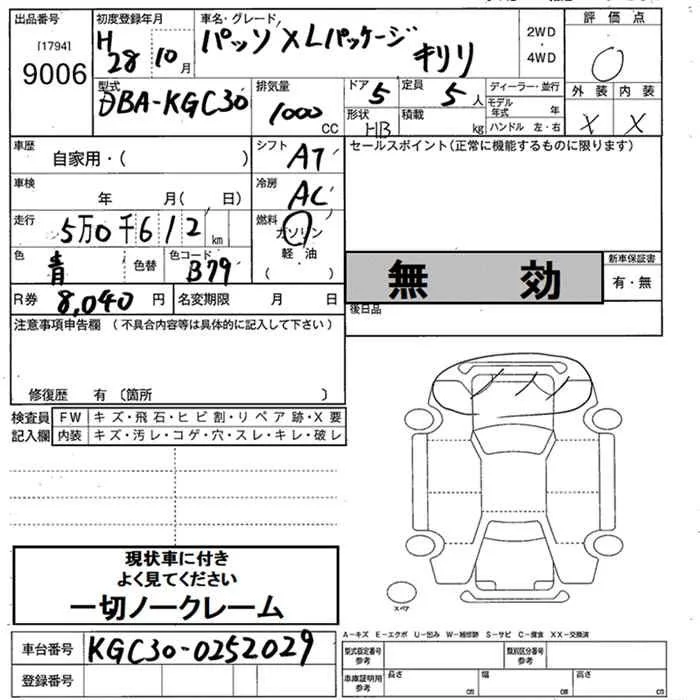 出品番号
[1794]
9006
初度登録年月
H28 10 月
車名・グレード
パッソ XLパッケージ キリリ
2WD
4WD
評価点
○
外装 内装
× ×
型式
DBA-KGC30
排気量
1000 CC
ドア
5
定員
5人
形状
HB
積載
kg
ディーラー・並行
モデル年式 年
ハンドル 左・右
車歴
自家用・( )
シフト
AT
セールスポイント(正常に機能するものに限ります)
車検
年 月( 日)
冷房
AC
走行
5万0千612km
燃料
ガソリン
軽油
( )
色
青
色替
色コード
B79
無効
新車保証書
有・無
R券
8,040円
名変期限 月 日
後日品
注意事項申告欄(不具合内容等は具体的に記入して下さい)
修復歴 有〔箇所 〕
検査員記入欄
FW キズ・飛石・ヒビ割・リペア跡・X要
内装 キズ・汚レ・コゲ・穴・スレ・キレ・破レ
現状車に付き
よく見てください
一切ノークレーム
スペア
車台番号
KGC30-0252029
登録番号
A-キズ E-エクボ U-凹み W-補修跡 S-サビ C-腐食 XX-交換済
型式指定番号
参考
類別区分番号
参考
車庫証明用
参考
長さ cm
幅 cm
高さ cm